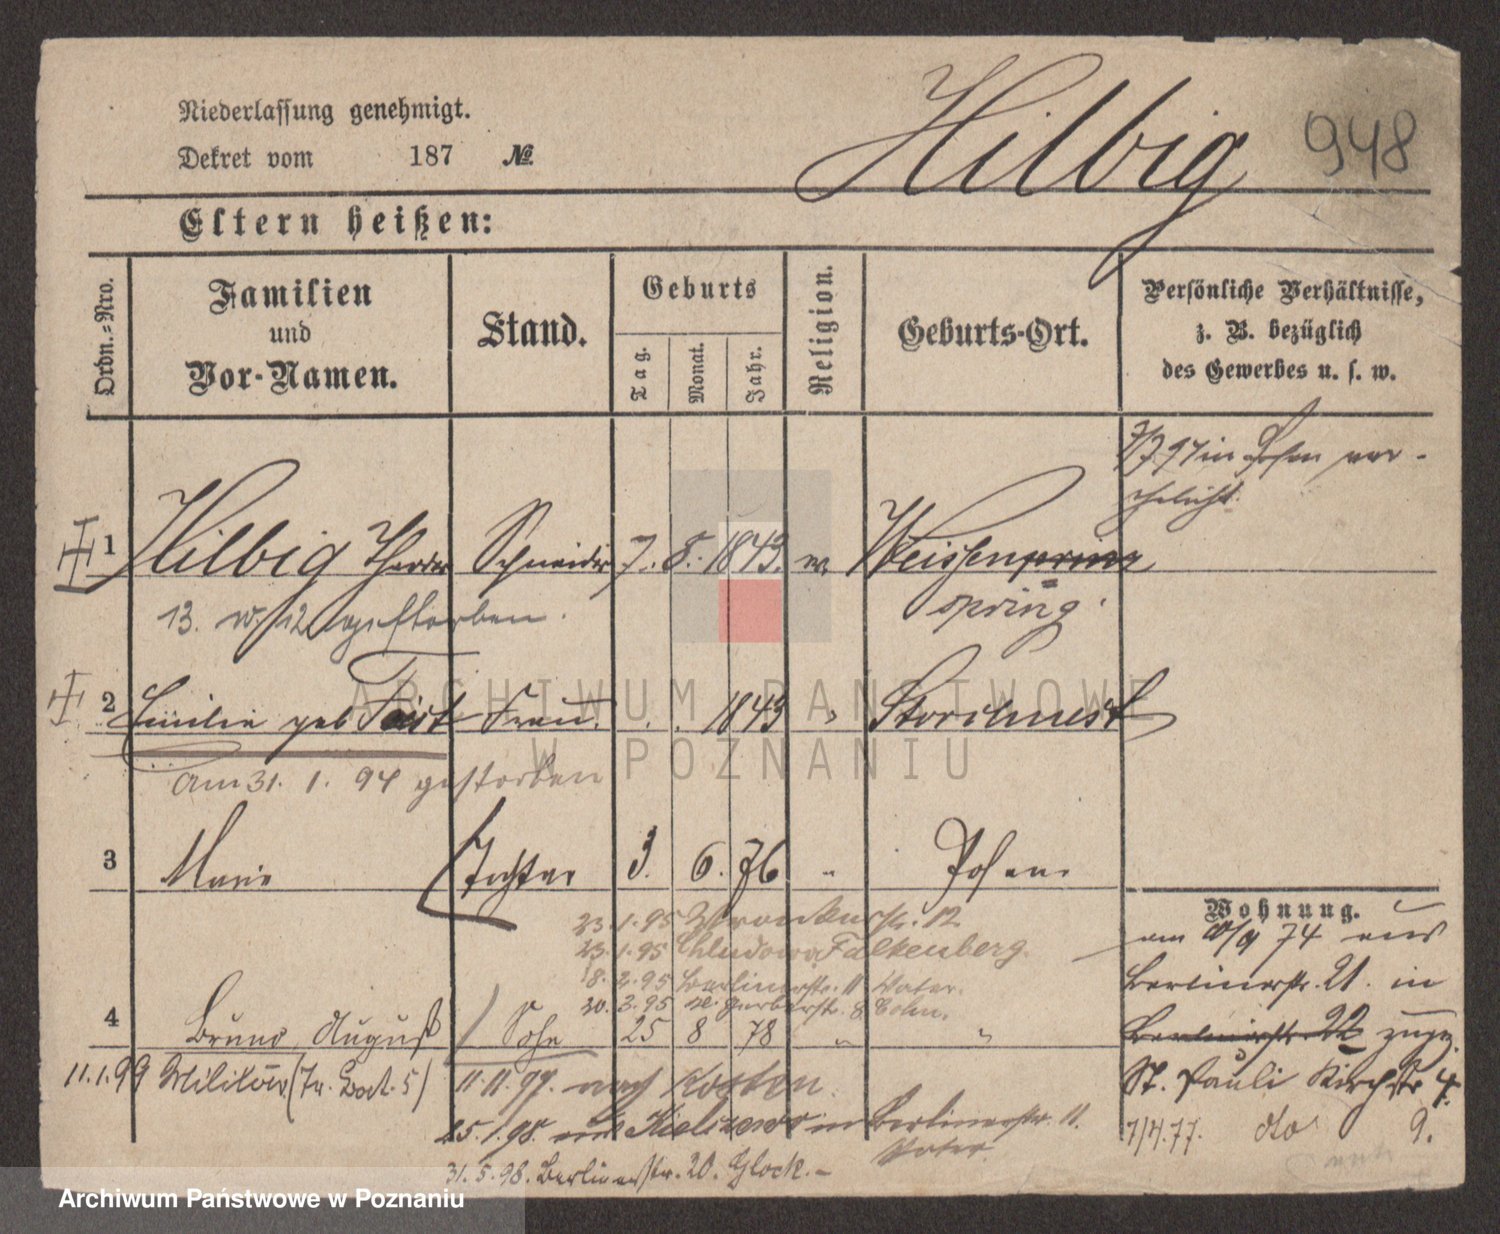 Niederlassung genehmigt.
Dekret vom 187 №
Hilbig
948
Eltern heißen:
Ordn.=Nro.
Familien
und
Vor-Namen.
Stand.
Geburts
Tag.
Monat.
Jahr.
Religion.
Geburts-Ort.
Persönliche Verhältnisse,
z. B. bezüglich
des Gewerbes u. s. w.
7/7 97 in Posen ver-
ehelicht.
1 Hilbig Theodor Schneider 7. 8. 1843. Weissenpring
spring
13. 12 gestorben.
2 Emilie geb Frau. 1843 " Storchnest
am 31. 1. 94 gestorben
3 Marie Tochter 3. 6. 76 " Posen
Wohnung.
23. 1. 95 Wronkerstr. 12
23. 1. 95 Chludowo Falkenberg.
18. 2. 95 Berlinerstr. 11 Vater.
20. 3. 95 Gerberstr. 8 Cohn.
4 Bruno August Sohn 25 8 78 " "
am 74 aus
Berlinerstr. 21. in
Berlinerstr. 22 zugez.
St. Pauli Kirchstr 4.
7/4. 77. do 9.
11. 1. 99 Militär (Tr. Bat. 5)
11. 11. 97. nach Kosten.
25. 1. 98. aus in Berlinerstr. 11.
Vater.
31. 5. 98. Berlinerstr. 20. Glock. -
ARCHIWUM PAŃSTWOWE
W POZNANIU
Archiwum Państwowe w Poznaniu